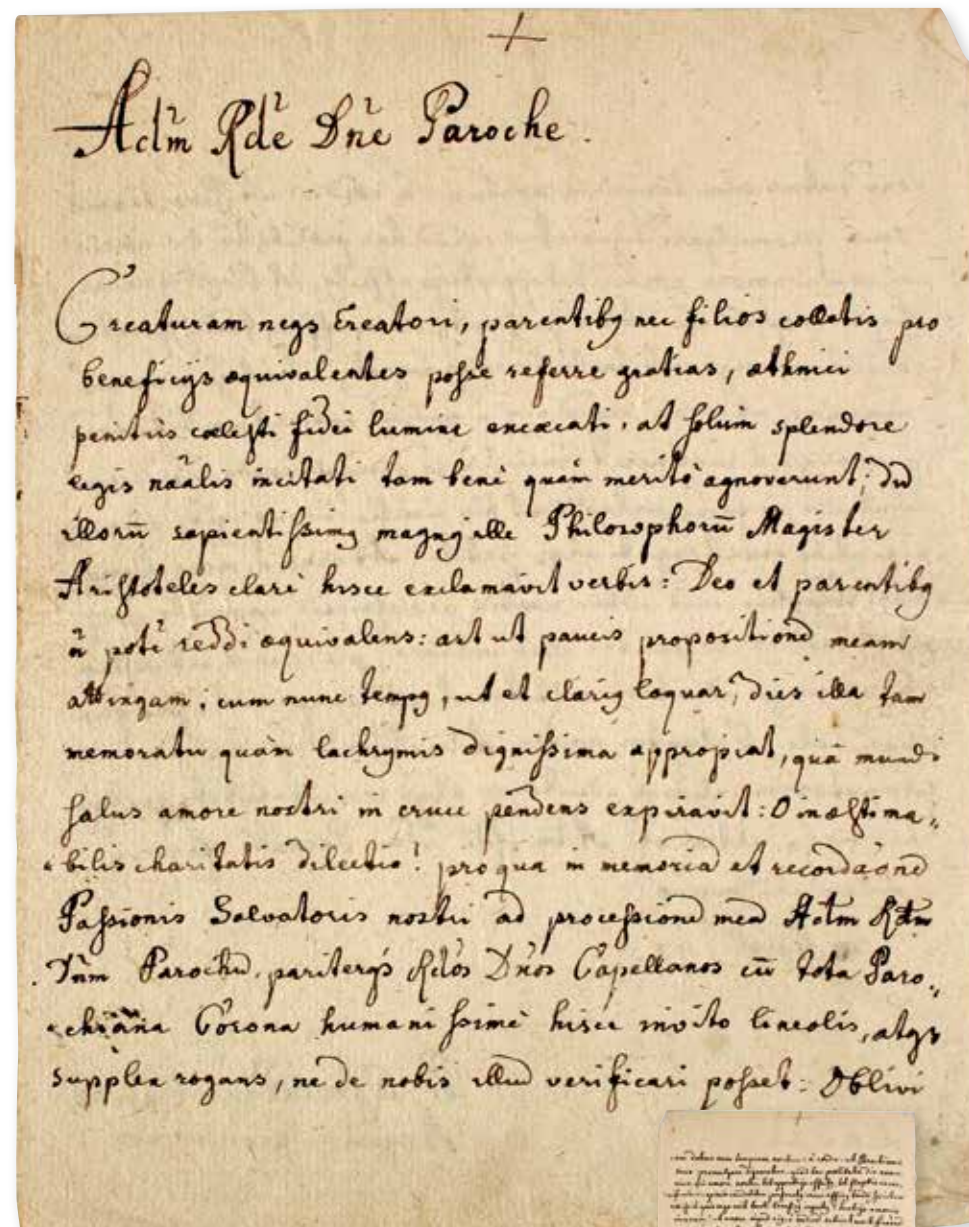 +
Adm̃ Rd̃e Dñe Paroche.
Creaturam neqs Creatori, parentibq nec filios collatis pro
beneficijs æquivalentes posse referre gratias, æthnici
penitùs cælesti fidei lumine excæcati, at solùm splendore
legis nãalis incitati tam benè quàm meritò agnoverunt; dũ
illorũ sapientissimq magnq ille Philosophorũ Magister
Aristoteles clarè hisce exclamavit verbis: Deo et parentibq
ñ potẽ reddi æquivalens: ast ut paucis propositionẽ meam
attingam; cum nunc tempq, ut et clariq loquar, dies illa tam
memoratu quàm lachrymis dignissima appropiat, quâ mundi
salus amore nostri in cruce pendens expiravit: O inæstima„
„bilis charitatis dilectio! pro qua in memoriã et recordãonẽ
Passionis Salvatoris nostri ad processionẽ meã Adtm Rdtm
Dñm Parochũ, pariterqs Rdòs Dños Capellanos cũ tota Paro„
„chiãna Corona humanissimè hisce invito lineolis, atqs
supplex rogans, ne de nobis illud verificari posset: Oblivi